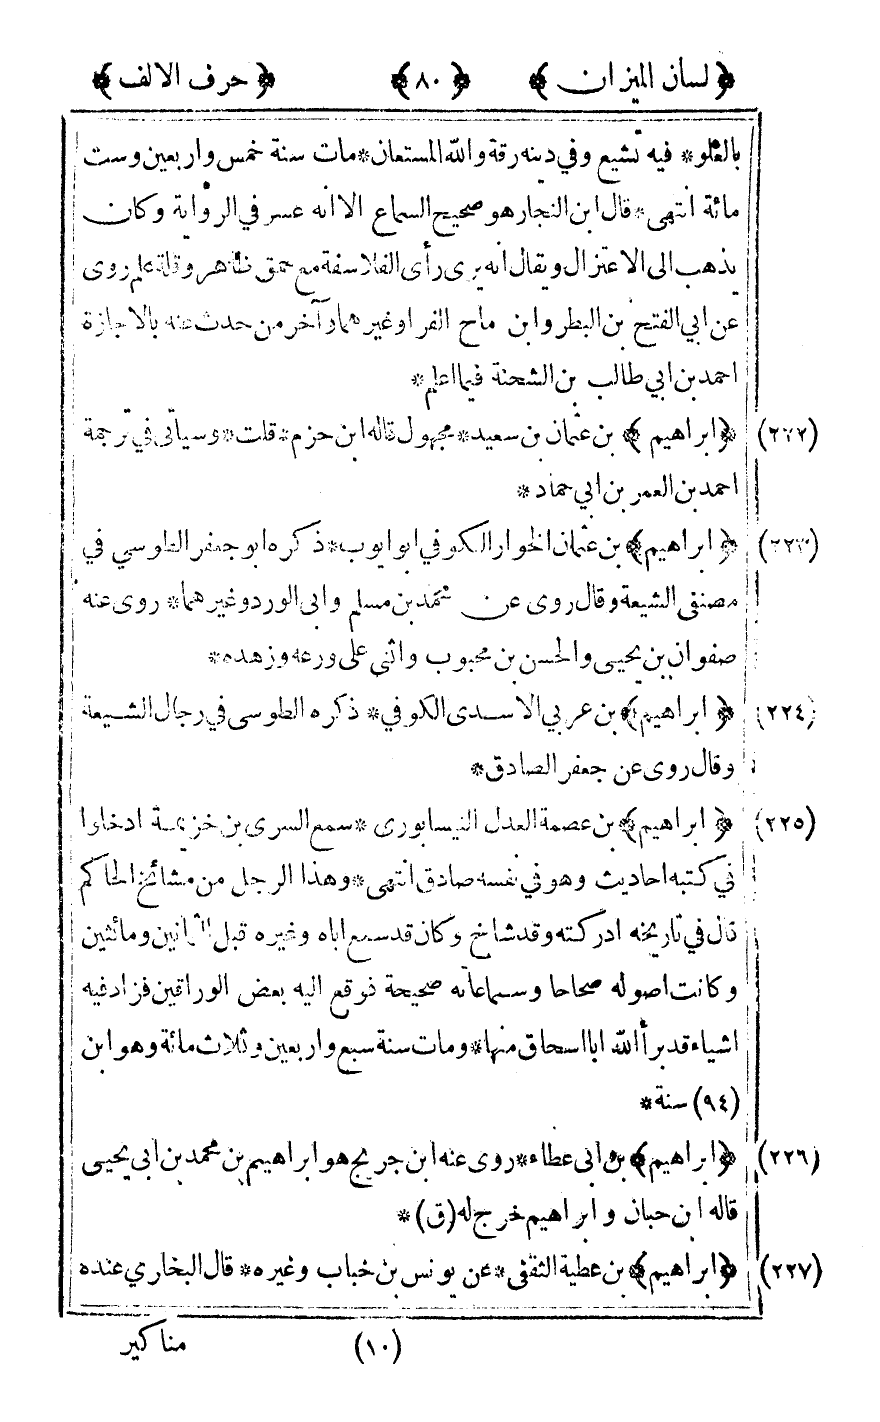 ﴿ لسان الميزان ﴾ ﴿ ٨٠ ﴾ ﴿ حرف الالف ﴾
بالغلو * فيه تشيع وفي دينه رقة والله المستعان * مات سنة خمس واربعين وست
مائة انتهى * قال ابن النجار هو صحيح السماع الا انه عسر في الرواية وكان
يذهب الى الاعتزال ويقال انه يرى رأى الفلاسفة مع حمق ظاهر وقلة علم روى
عن ابي الفتح بن البطر وابن ماح الفرا وغيرهما وآخر من حدث عنه بالاجازة
احمد بن ابي طالب بن الشحنة فيما اعلم *
(٢٢٢) ﴿ ابراهيم ﴾ بن عثمان بن سعيد * مجهول قاله ابن حزم * قلت * وسيأتى في ترجمة
احمد بن العمر بن ابي حماد *
(٢٢٣) ﴿ ابراهيم ﴾ بن عثمان الخوار الكوفي ابو ايوب * ذكره ابو جعفر الطوسي في
مصنفى الشيعة وقال روى عن محمد بن مسلم وابى الورد وغيرهما * روى عنه
صفوان بن يحيى والحسن بن محبوب واثنى على ورعه وزهده *
(٢٢٤) ﴿ ابراهيم ﴾ بن عربي الاسدى الكوفي * ذكره الطوسى في رجال الشيعة
وقال روى عن جعفر الصادق *
(٢٢٥) ﴿ ابراهيم ﴾ بن عصمة العدل النيسابورى * سمع السرى بن خزيمة ادخلوا
في كتبه احاديث وهو في نفسه صادق انتهى * وهذا الرجل من مشائخ الحاكم
قال في تاريخه ادركته وقد شاخ وكان قد سمع اباه وغيره قبل الثمانين ومائتين
وكانت اصوله صحاحا وسماعاته صحيحة فوقع اليه بعض الوراقين فزاد فيه
اشياء قد برأ الله ابا اسحاق منها * ومات سنة سبع واربعين وثلاث مائة وهو ابن
(٩٤) سنة *
(٢٢٦) ﴿ ابراهيم ﴾ بن ابى عطاء * روى عنه ابن جريج هو ابراهيم بن محمد بن ابى يحيى
قاله ابن حبان و ابراهيم خرج له (ق) *
(٢٢٧) ﴿ ابراهيم ﴾ بن عطية الثقفى * عن يونس بن خباب وغيره * قال البخاري عنده
(١٠) مناكير